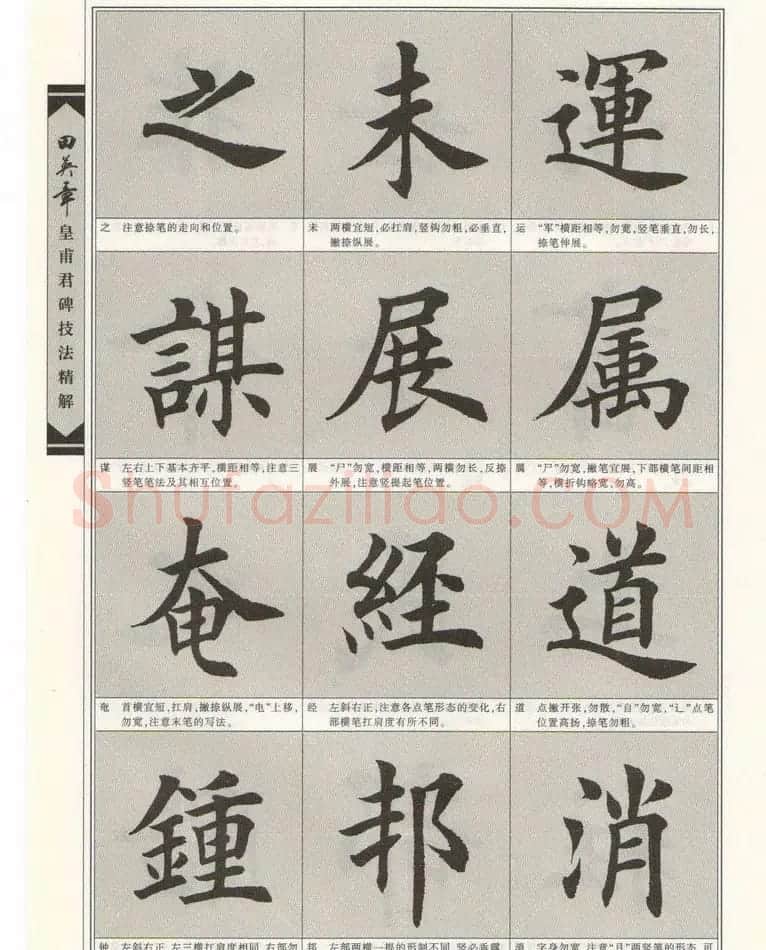 田英章
皇甫君碑技法精解
之 未 運
之 注意捺笔的走向和位置。
未 两横宜短,必扛肩,竖钩勿粗,必垂直,
撇捺纵展。
运 “军”横距相等,勿宽,竖笔垂直,勿长,
捺笔伸展。
謀 展 属
谋 左右上下基本齐平,横距相等,注意三
竖笔笔法及其相互位置。
展 “尸”勿宽,横距相等,两横勿长,反捺
外展,注意竖提起笔位置。
属 “尸”勿宽,撇笔宜展,下部横笔间距相
等,横折钩略宽,勿高。
Shufaziliao.COM
奄 經 道
奄 首横宜短,扛肩,撇捺纵展,“电”上移,
勿宽,注意末笔的写法。
经 左斜右正,注意各点笔形态的变化,右
部横笔扛肩度有所不同。
道 点撇开张,勿散,“自”勿宽,“辶”点笔
位置高扬,捺笔勿粗。
鍾 邦 消
钟 左斜右正,左三横扛肩度相同,右部勿
邦 左部两横一提的形制不同,竖必垂露
消 字身勿宽,注意“月”两竖笔的形态,可